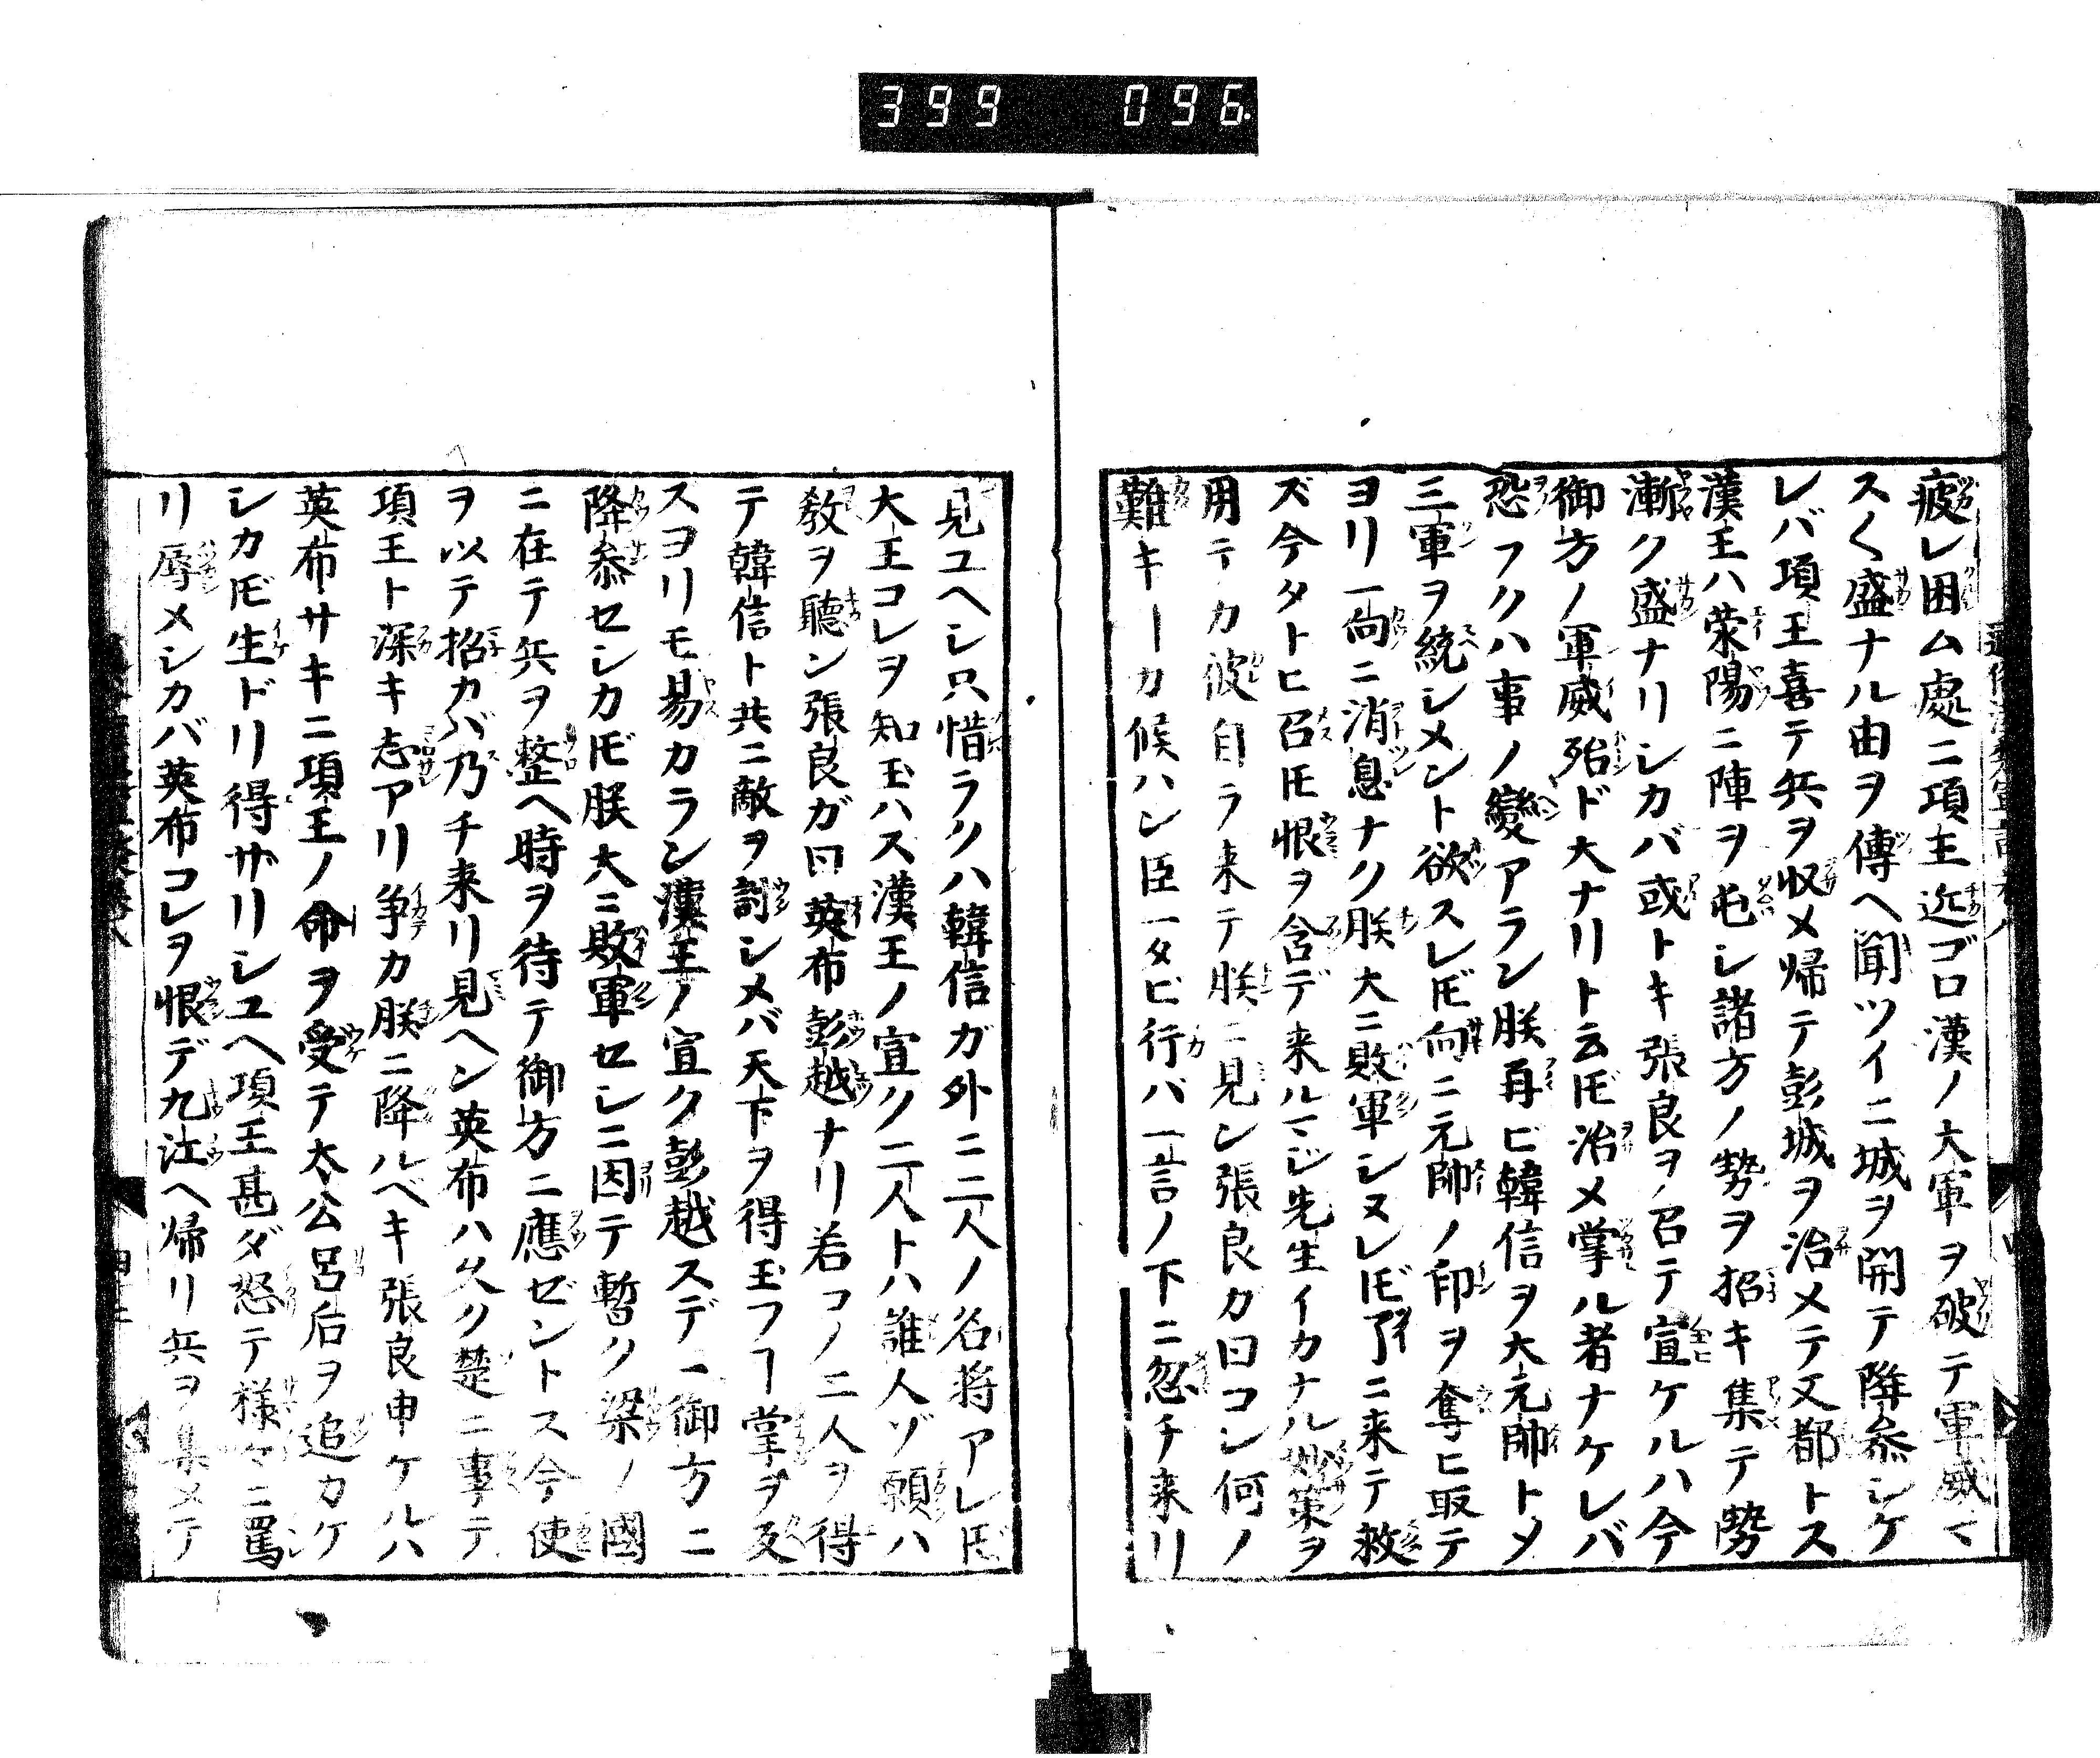 399 096
疲レ困ム處ニ項王近ゴロ漢ノ大軍ヲ破テ軍威マ
スく盛ナル由ヲ傳ヘ聞ツイニ城ヲ開テ降叅シケ
レバ項王喜テ兵ヲ収メ帰テ彭城ヲ治メテ又都トス
漢王ハ荥陽ニ陣ヲ屯シ諸方ノ勢ヲ招キ集テ勢
漸ク盛ナリシカバ或トキ張良ヲ召テ宣ケルハ今
御方ノ軍威殆ド大ナリト云ℸ治メ掌ル者ナケレバ
恐フクハ事ノ變アラン朕再ビ韓信ヲ大元帥トメ
三軍ヲ統シメント欲スレℸ向ニ元帥ノ印ヲ奪ヒ取テ
ヨリ一向ニ消息ナク朕大ニ敗軍シヌレℸ了ニ来テ救
ズ今タトヒ召ℸ恨ヲ含デ来ルマジ先生イカナル妙策ヲ
用テカ彼自ラ来テ朕ニ見ン張良カ曰コン何ノ
難キーカ候ハン臣一タビ行バ一言ノ下ニ忽チ来リ
見ユヘシ只惜ラクハ韓信ガ外ニ二人ノ名将アレℸ
大王コレヲ知玉ハス漢王ノ宣ク二人トハ誰人ゾ願ハ
敎ヲ聽ン張良ガ曰英布彭越ナリ若コノ二人ヲ得
テ韓信ト共ニ敵ヲ討シメバ天下ヲ得玉フヿ掌ヲ反
スヨリモ易カラン漢王ノ宣ク彭越スデニ御方ニ
降叅セシカℸ朕大ニ敗軍セシニ因テ暫ク梁ノ國
ニ在テ兵ヲ整ヘ時ヲ待テ御方ニ應ゼントス今使
ヲ以テ招カバ乃チ来リ見ヘン英布ハ久ク楚ニ事テ
項王ト深キ志アリ争カ朕ニ降ルベキ張良申ケルハ
英布サキニ項王ノ命ヲ受テ太公呂后ヲ追カケ
シカℸ生ドリ得ザリシユヘ項王甚ダ怒テ様々ニ罵
リ辱メシカバ英布コレヲ恨デ九江ヘ帰リ兵ヲ集メテ